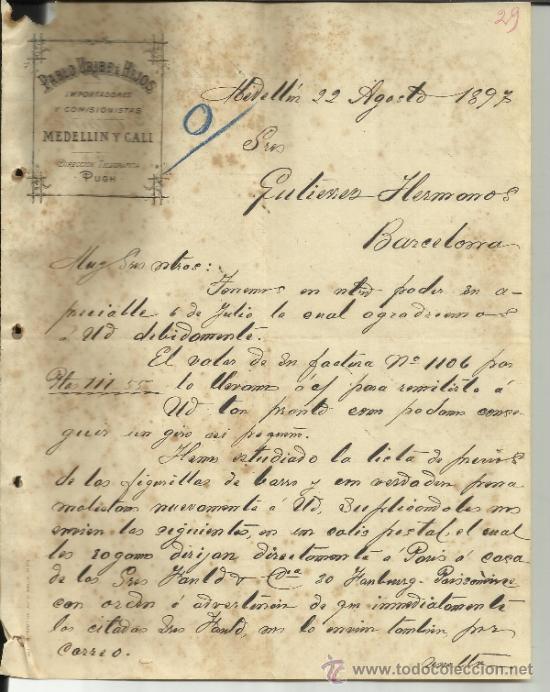 29
PABLO URIBE E HIJOS
IMPORTADORES
Y COMISIONISTAS
MEDELLIN Y CALI
DIRECCION TELEGRAFICA
PUGH
Medellin 22 Agosto 1897
Sres
Gutierrez Hermanos
Barcelona
Muy Sres ntros:
Tenemos en ntro poder su a-
preciable 6 de Julio la cual agradecemos
á Ud debidamente.
El valor de su factura Nº 1106 por
Pts 111.55 lo llevamos á c/ para remitirlo á
Ud tan pronto como podamos conse
guir un giro asi pequeño.
Hemos estudiado la lista de precios
de las figurillas de barro y con verdadera pena
molestamos nuevamente á Ud, suplicándoles nos
envien las siguientes, en un colis postal, el cual
les rogamos dirijan directamente á Paris á casa
de los Sres Fauld & Cia 30 Hauburg-
con orden ó advertencia de que inmediatamente
los citados Sres Fauld, nos lo envien tambien por
correo.
vuelta
todocoleccion
www.todocoleccion.net